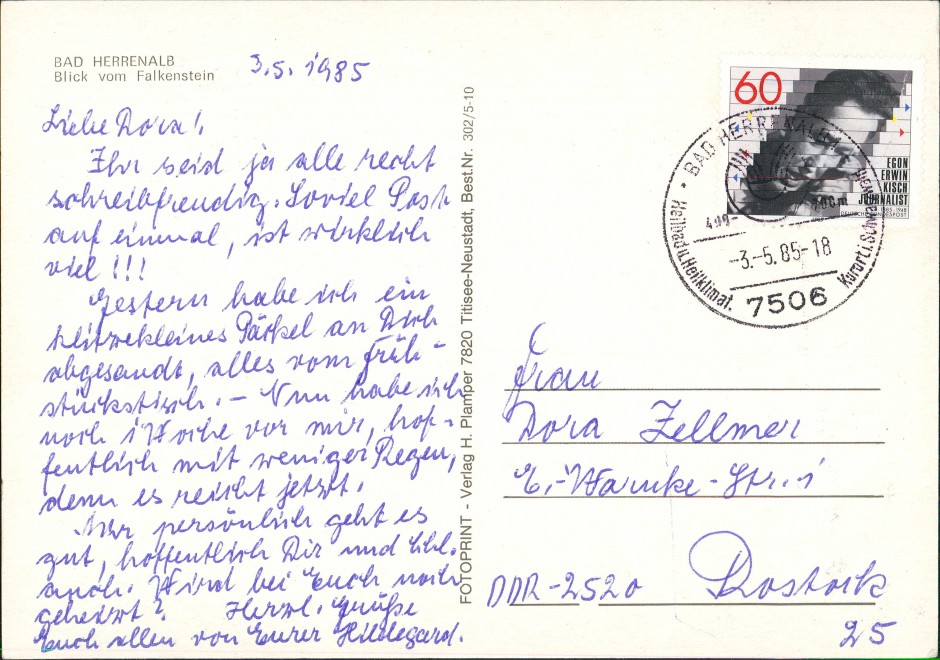 BAD HERRENALB
Blick vom Falkenstein
3.5.1985
Liebe Dora!
Ihr seid ja alle recht
schreibfreudig. Soviel Post
auf einmal, ist wirklich
viel !!!
Gestern habe ich ein
klitzekleines Päckel an Dich
abgesandt, alles vom Früh-
stückstisch. – Nun habe ich
noch 1 Woche vor mir, hof-
fentlich mit weniger Regen,
denn es reicht jetzt.
Mir persönlich geht es
gut, hoffentlich Dir und
auch. Wird bei Euch noch
geheizt? Herzl. Grüße
Euch allen von Eurer Hildegard.
FOTOPRINT - Verlag H. Plamper 7820 Titisee-Neustadt, Best.Nr. 302/5-10
60
EGON
ERWIN
KISCH
JOURNALIST
1885-1948
DEUTSCHE BUNDESPOST
BAD HERRENALB
400-
700m
-3.-5.85-18
Heilbad u. Heilklimat.
Kurort i. Schwarzwald
7506
Frau
Dora Zellmer
E.-Warnke-Str. 1
DDR-2520 Rostock
25